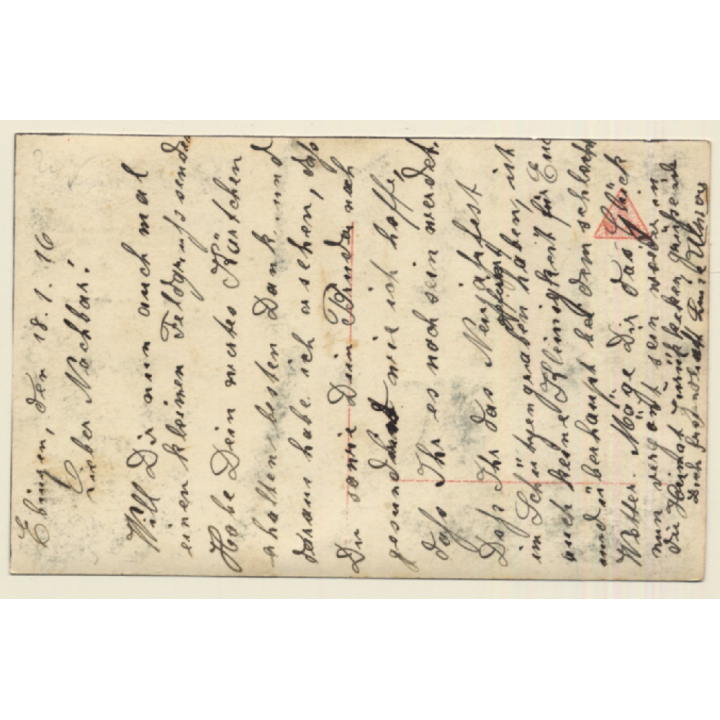 Ebingen, den 18.1.16
Lieber Nachbar!
Will Dir nun auch mal
einen kleinen Feldgruss senden
Habe Dein wertes Kärtchen
erhalten besten Dank und
daraus habe ich ersehen, daß
Du sowie Dein Bruder noch
gesund und wie ich hoffe,
daß Ihr es noch sein werdet.
Daß Ihr das Neujahrfest
im Schützengraben haben, ist
auch keine Kleinigkeit für Euch
und überhaupt bei dem schlechten
Wetter. Möge Dir das Glück
nun vergönt sein wieder in
die Heimat zurück kehren grüßend
Dich